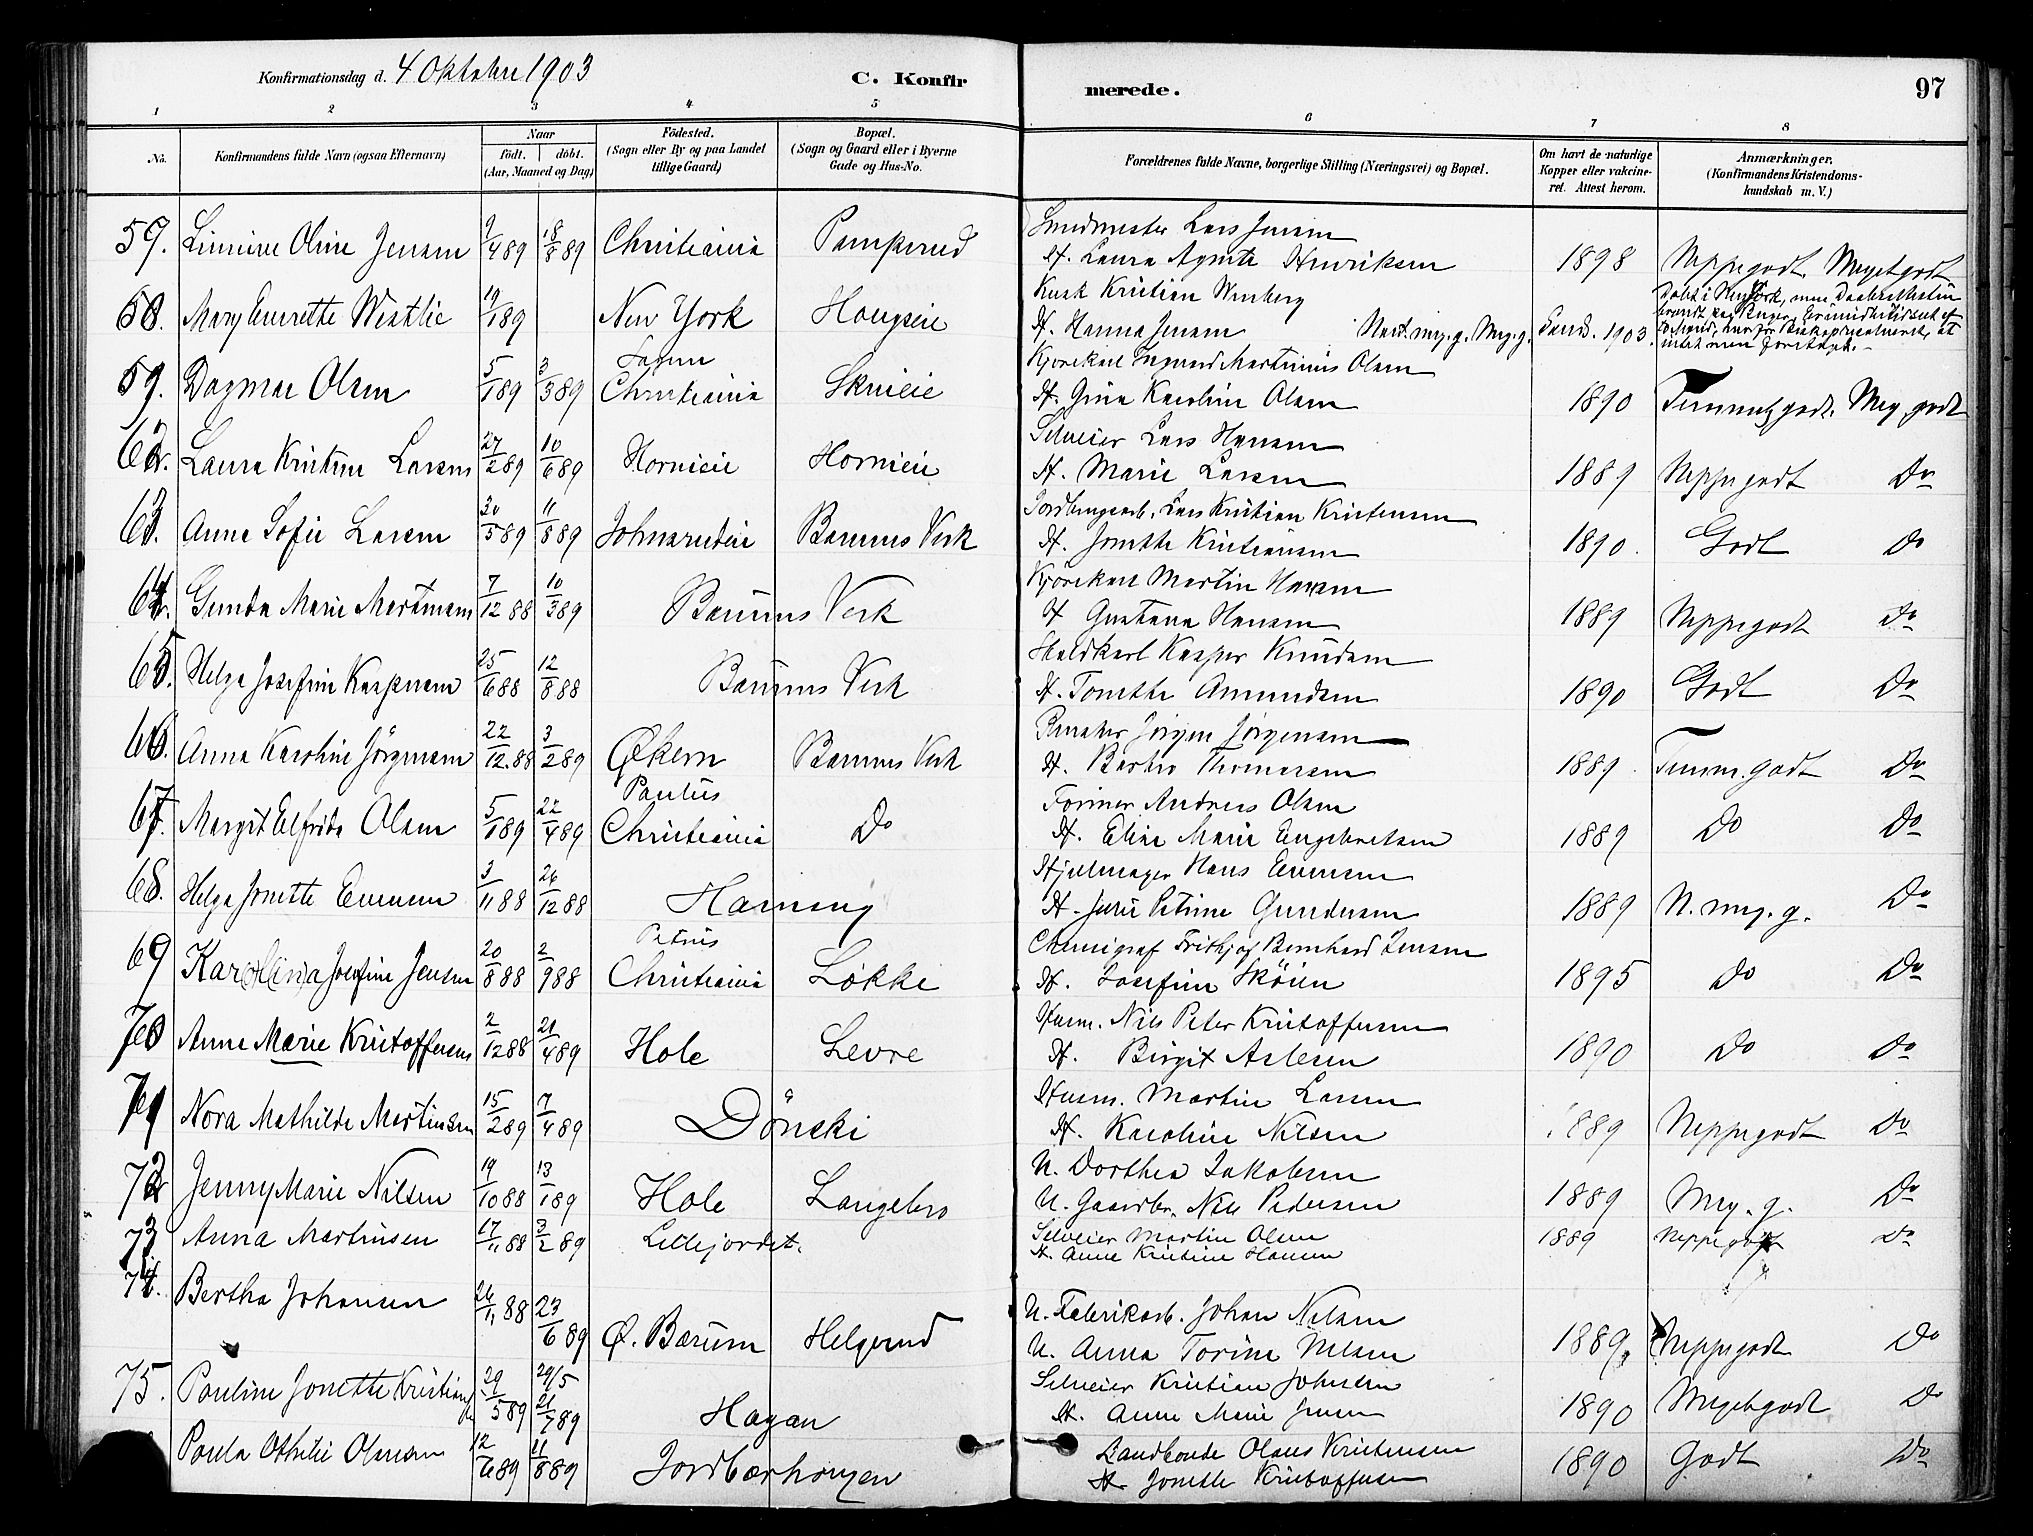 Konfirmationsdag d. 4 Oktobre 1903
C. Konfirmerede.
97
1 2 3 4 5 6 7 8
No. Konfirmandens fulde Navn (ogsaa Efternavn) Naar födt. döbt. (Aar, Maaned og Dag) Födested. (Sogn eller By og paa Landet tillige Gaard) Bopæl. (Sogn og Gaard eller i Byerne Gade og Hus-No. Forældrenes fulde Navne, borgerlige Stilling (Næringsvei) og Bopæl. Om havt de naturlige Kopper eller vakcineret. Attest herom. Anmærkninger. (Konfirmandens Kristendomskundskab m. V.)
Smedmester Lars Jensen
57. Oline Jensen 9/4 89 18/8 89 Christiania Pamperud H. Laura Agnete Henriksen 1898 Neppe godt. Meget godt
Kusk Kristian Winberg
58. Mary Westlie 19/1 89 New York Haugseie H. Hanna Jensen Næst. meg. g. Meg. g. 1903
Kjørekarl Ingvard Martinius Olsen
59. Dagmar Olsen 5/1 89 3/3 89 Christiania H. Gina Karoline Olsen 1890 Temmelig godt. Meg. godt
Selveier Lars Hansen
62. Laura Kristine Larsen 27/2 89 10/6 89 Hornieie Hornieie H. Marie Larsen 1889 Neppe godt Do
Lars Kristian Kristensen
63. Anne Sofie Larsen 30/5 89 11/8 89 Johnsrudeie Bærums Verk H. Jonette Kristiansen 1890. Godt Do
Kjörekarl Martin Hansen
64. Gunda Marie Martinsen 7/12 88 10/3 89 Bærums Verk H Gustava Hansen 1889 Neppe godt Do
Kasper Knudsen
65. Helga Josefine Kaspersen 25/6 88 12/8 88 Bærums Verk H. Tonette Amundsen 1890 Godt Do
Jörgen Jörgensen
66. Anna Karoline Jörgensen 22/12.88 3/2 89 Økern Bærums Verk H. Berthe Thomasen 1889. Temm. godt Do
Paulus Former Andreas Olsen
67. Margit Elfrida Olsen 5/1 89 22/4 89 Christiania Do H. Eline Marie Engebretsen 1889 Do Do
Hjulmager Hans Evensen
68. Helga Jonette Evensen 3/11 88 26/12 88 Haneng H. Julie Petrine Gundersen 1889 N. meg. g. Do
Petrus Chemigraf Frithjof Bernhard Jensen
69 Karolina Josefine Jensen 20/8 88 2/9 88 Christiania Løkke H. Josefine Sköien 1895 Do Do
Husm. Nils Peter Kristoffersen
70 Anne Marie Kristoffersen 2/12 88 21/4 89 Hole Levre H. Birgit Aslesen 1890 Do Do
Husm. Martin Larsen
71 Nora Mathilde Martinsen 15/2 89 7/4 89 Dönski H. Karoline Nilsen 1889 Neppe godt Do
U. Dorthea Jakobsen
72 Jenny Marie Nilsen 19/10 88 13/1 89 Hole Langebro U. Gaardbr. Nils Pedersen 1889 Meg. g. Do
73 Anna Martinsen 17/11 88 3/2 89 Lillejordet. Selveier Martin Olsen 1889 Neppe godt Do
H. Anne Kristine Hansen
74. Bertha Johansen 26/11 88 23/6 89 Ø. Bærum Helgerud U. Fabrikarb. Johan Nilsen
U. Anna Torine Nilsen 1889. Neppe godt Do
29/5 Selveier Kristian Johnsen
75. Pauline Jonette Kristiansen 29/5 89 21/7 89 Hagan H. Anne Marie Jensen 1890 Meget godt Do
Paula Othilie Olausen 12/6 89 11/8 89 Jordbærhaugen Landhande Olaus Kristensen 1890 Godt Do
H. Jonette Kristoffersen